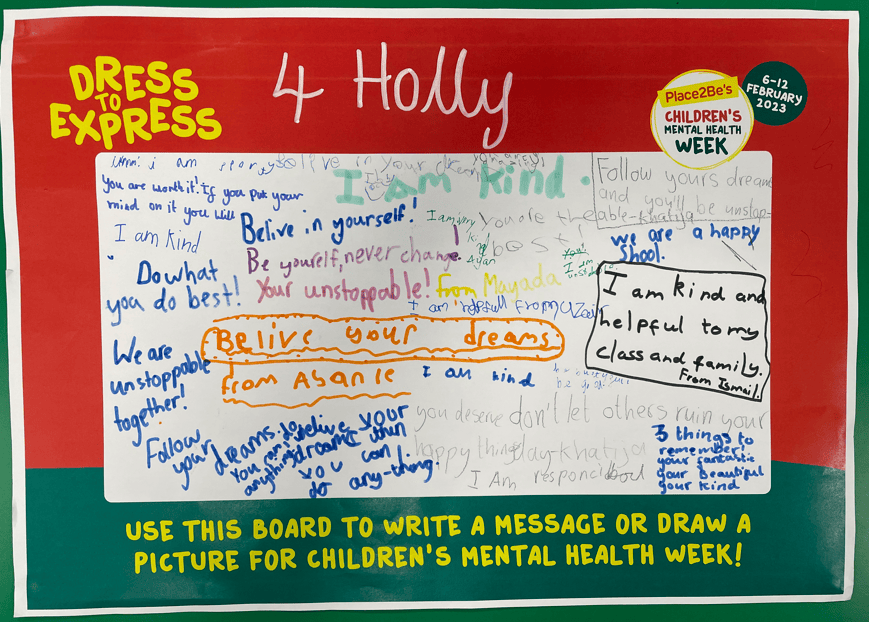 DRESS
TO
EXPRESS
4 Holly
Place2Be's
CHILDREN'S
MENTAL HEALTH
WEEK
6-12
FEBRUARY
2023
i am
live in your dream
You are worth it! If you put your
mind on it you will
I am kind.
Follow yours dream
and you'll be unstop-
able-khatija
I am kind
Belive in yourself!
I am very
You are the
best!
we are a happy
shool.
Be yourself, never change!
Ayan
I am
Do what
you do best!
Your unstoppable!
From Mayada
I am kind and
helpful to my
class and family.
From Ismail.
from Uzair
Belive your dreams.
from Asanle
I am kind
We are
unstoppable
together!
you deserve
happy things
don't let others ruin your
day-khatija
I Am
Follow
your dreams.
You can
anything
belive your
dream when
you can
do any-thing.
3 things to
remember!
your fantastic
your beautiful
your kind
USE THIS BOARD TO WRITE A MESSAGE OR DRAW A
PICTURE FOR CHILDREN'S MENTAL HEALTH WEEK!